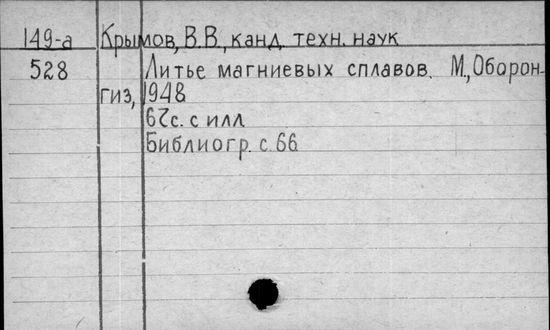 149-а Крымов, В.В., канд. техн. наук
528 Литье магниевых сплавов. М., Оборон-
гиз, 1948
с. с илл
Библиогр. с. 66